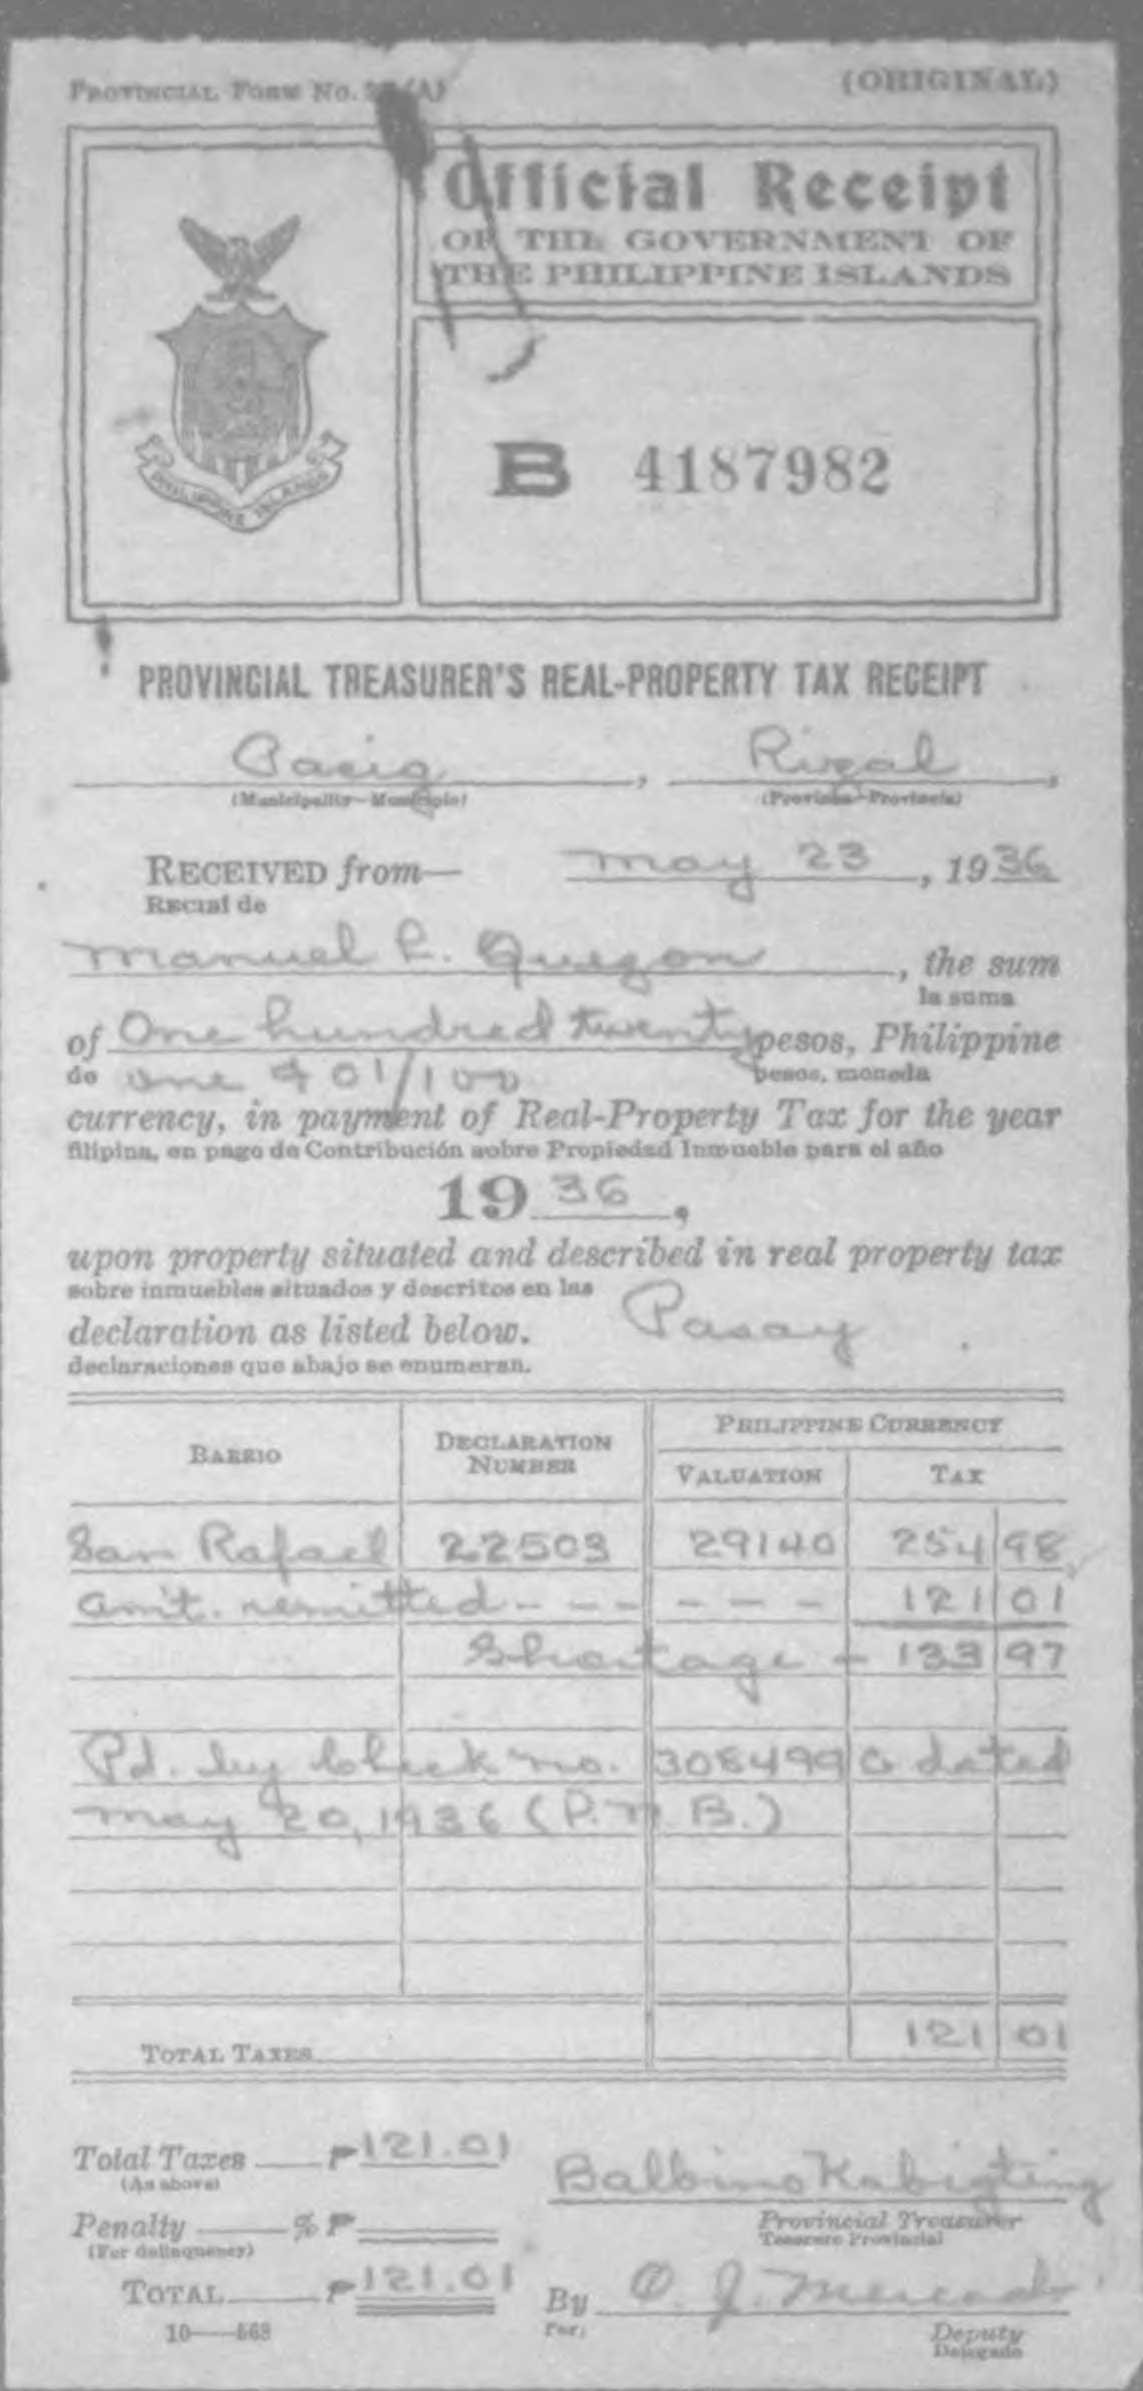 PROVINCIAL FORM No. (A)
(ORIGINAL)
Official Receipt
OF THE GOVERNMENT OF
THE PHILIPPINE ISLANDS
PHILIPPINE ISLANDS
B 4187982
PROVINCIAL TREASURER'S REAL-PROPERTY TAX RECEIPT
Pasig, Rizal,
(Municipality—Municipio) (Province—Provincia)
RECEIVED from— May 23, 1936
RECIBÍ de
Manuel L. Quezon, the sum
la suma
of One hundred twenty pesos, Philippine
de one & 01/100 pesos, moneda
currency, in payment of Real-Property Tax for the year
filipina, en pago de Contribución sobre Propiedad Inmueble para el año
1936,
upon property situated and described in real property tax
sobre inmuebles situados y descritos en las
declaration as listed below. Pasay
declaraciones que abajo se enumeran.
PHILIPPINE CURRENCY
BARRIO DECLARATION NUMBER VALUATION TAX
San Rafael 22503 29140 254 98
Amt. remitted - - - - - - 121 01
Shortage - 133 97
Pd. by Check no. 308499 dated
May 20, 1936 (P.N.B.)
TOTAL TAXES 121 01
Total Taxes ₱121.01 Balbino Kabigting
(As above) Provincial Treasurer
Tesorero Provincial
Penalty % ₱
(For delinquency)
TOTAL ₱121.01 By O. J. Mercado
10—568 Por: Deputy
Delegado